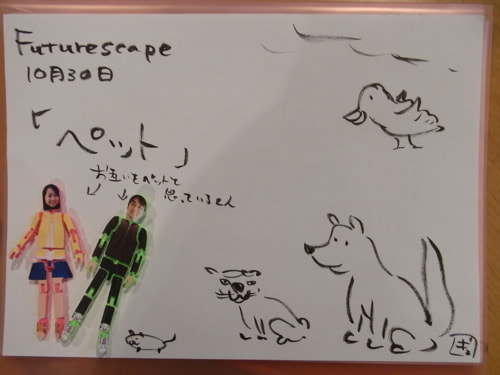 Futurescape
10月30日
「ペット」
お互いをペットと
思っている2人